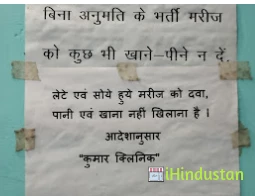 बिना अनुमति के भर्ती मरीज
को कुछ भी खाने-पीने न दें.
लेटे एवं सोये हुये मरीज को दवा,
पानी एवं खाना नहीं खिलाना है ।
आदेशानुसार
"कुमार क्लिनिक"
iHindustan